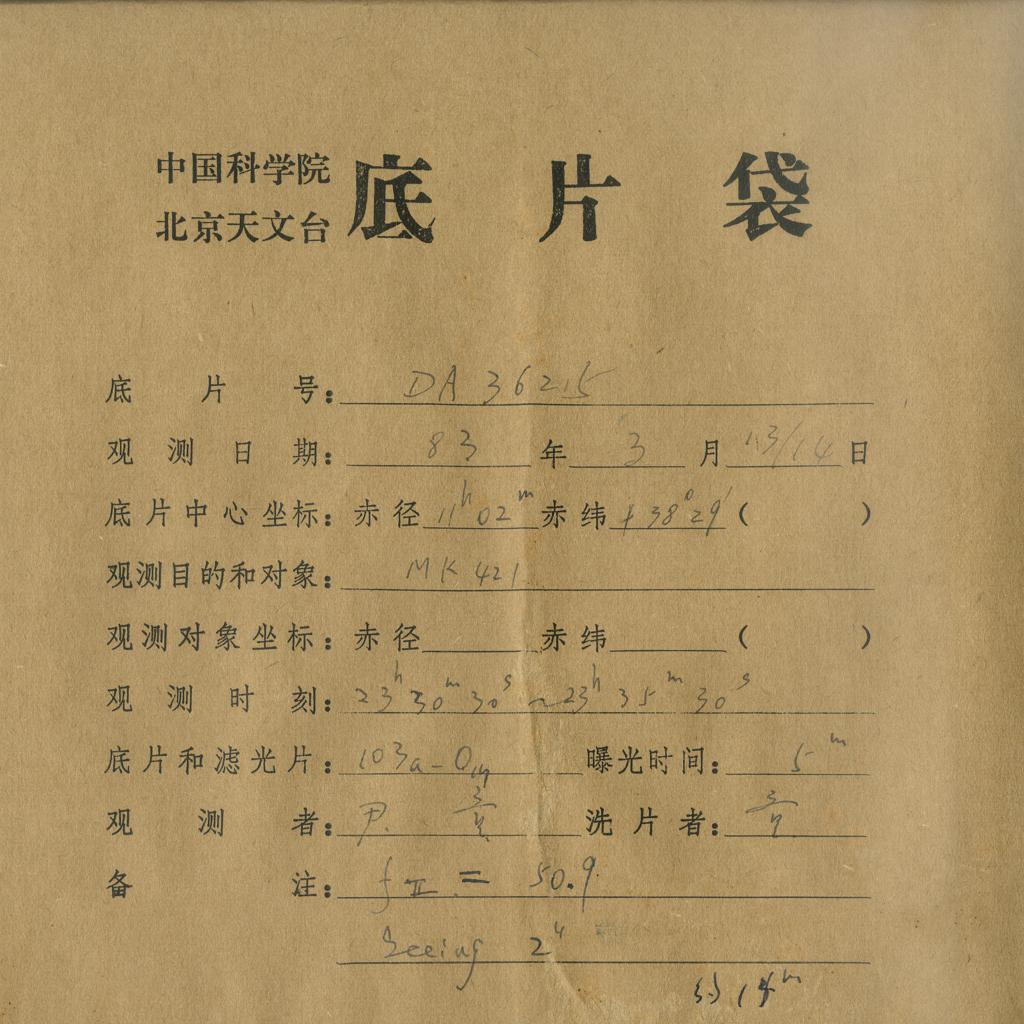 中国科学院
北京天文台
底片袋
底片号: DA 36215
观测日期: 83 年 3 月 13/14 日
底片中心坐标: 赤径 11h 02m 赤纬 +38°29′ ( )
观测目的和对象: MK 421
观测对象坐标: 赤径 赤纬 ( )
观测时刻: 23h 30m 30s ~ 23h 35m 30s
底片和滤光片: 103a-O 曝光时间: 5m
观测者: 尹 洗片者:
备注: fII = 50.9
Seeing 2"
约 14m